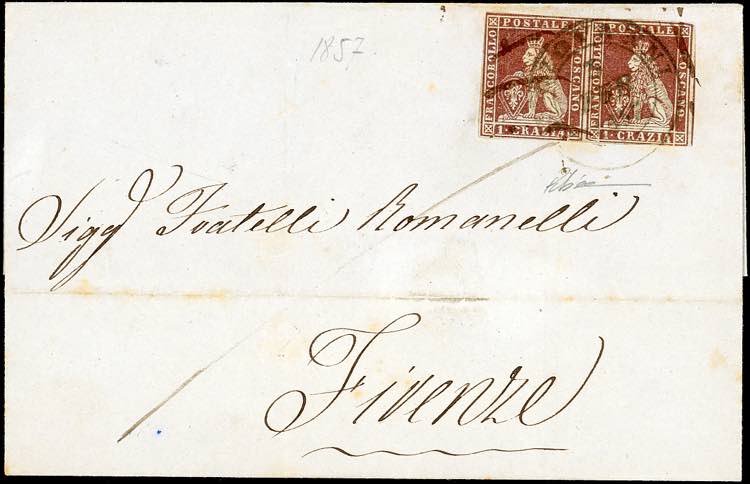 1857
FRANCOBOLLO POSTALE TOSCANO
1 · CRAZIA
FRANCOBOLLO POSTALE TOSCANO
1 · CRAZIA
Sigg Fratelli Romanelli
Firenze